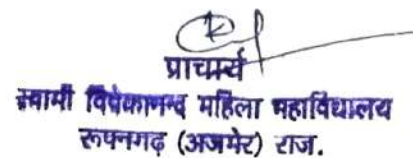 प्राचार्य
स्वामी विवेकानन्द महिला महाविधालय
रूपनगढ़ (अजमेर) राज.